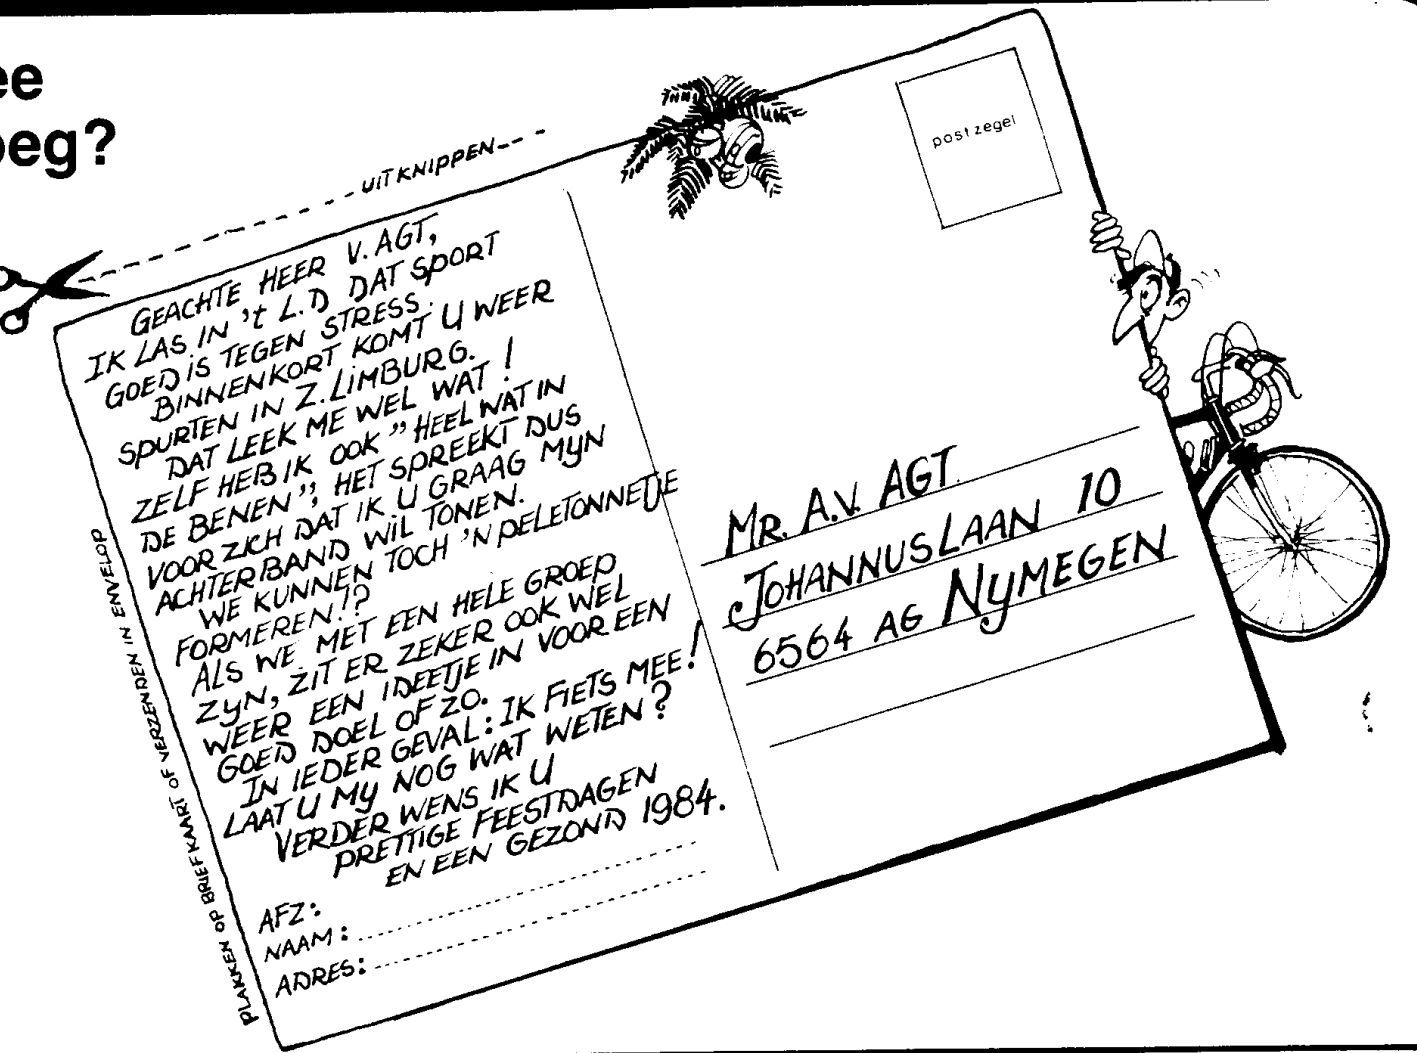 ee
oeg?
UITKNIPPEN
postzegel
GEACHTE HEER V. AGT,
IK LAS IN 't L.D DAT SPORT
GOED IS TEGEN STRESS.
BINNENKORT KOMT U WEER
SPURTEN IN Z. LIMBURG.
DAT LEEK ME WEL WAT!
ZELF HEB IK OOK "HEEL WAT IN
DE BENEN", HET SPREEKT DUS
VOOR ZICH DAT IK U GRAAG MYN
ACHTERBAND WIL TONEN.
WE KUNNEN TOCH 'N PELETONNETJE
FORMEREN!?
ALS WE MET EEN HELE GROEP
ZYN, ZIT ER ZEKER OOK WEL
WEER EEN IDEETJE IN VOOR EEN
GOED DOEL OF ZO.
IN IEDER GEVAL: IK FIETS MEE!
LAAT U MY NOG WAT WETEN?
VERDER WENS IK U
PRETTIGE FEESTDAGEN
EN EEN GEZOND 1984.
AFZ:
NAAM:
ADRES:
PLAKKEN OP BRIEFKAART OF VERZENDEN IN ENVELOP
MR. A.V. AGT
JOHANNUSLAAN 10
6564 AG NYMEGEN